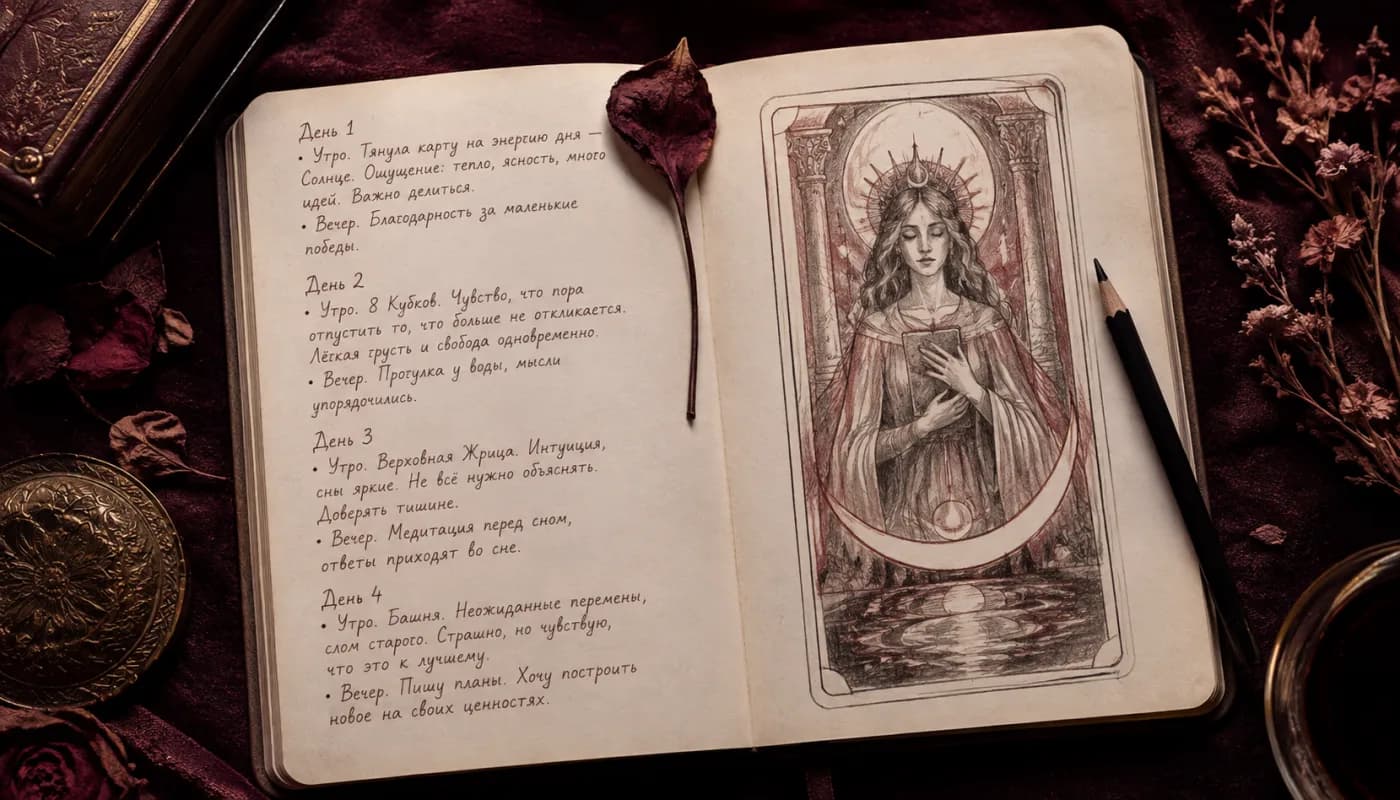 День 1
• Утро. Тянула карту на энергию дня —
Солнце. Ощущение: тепло, ясность, много
идей. Важно делиться.
• Вечер. Благодарность за маленькие
победы.
День 2
• Утро. 8 Кубков. Чувство, что пора
отпустить то, что больше не откликается.
Лёгкая грусть и свобода одновременно.
• Вечер. Прогулка у воды, мысли
упорядочились.
День 3
• Утро. Верховная Жрица. Интуиция,
сны яркие. Не всё нужно объяснять.
Доверять тишине.
• Вечер. Медитация перед сном,
ответы приходят во сне.
День 4
• Утро. Башня. Неожиданные перемены,
слом старого. Страшно, но чувствую,
что это к лучшему.
• Вечер. Пишу планы. Хочу построить
новое на своих ценностях.